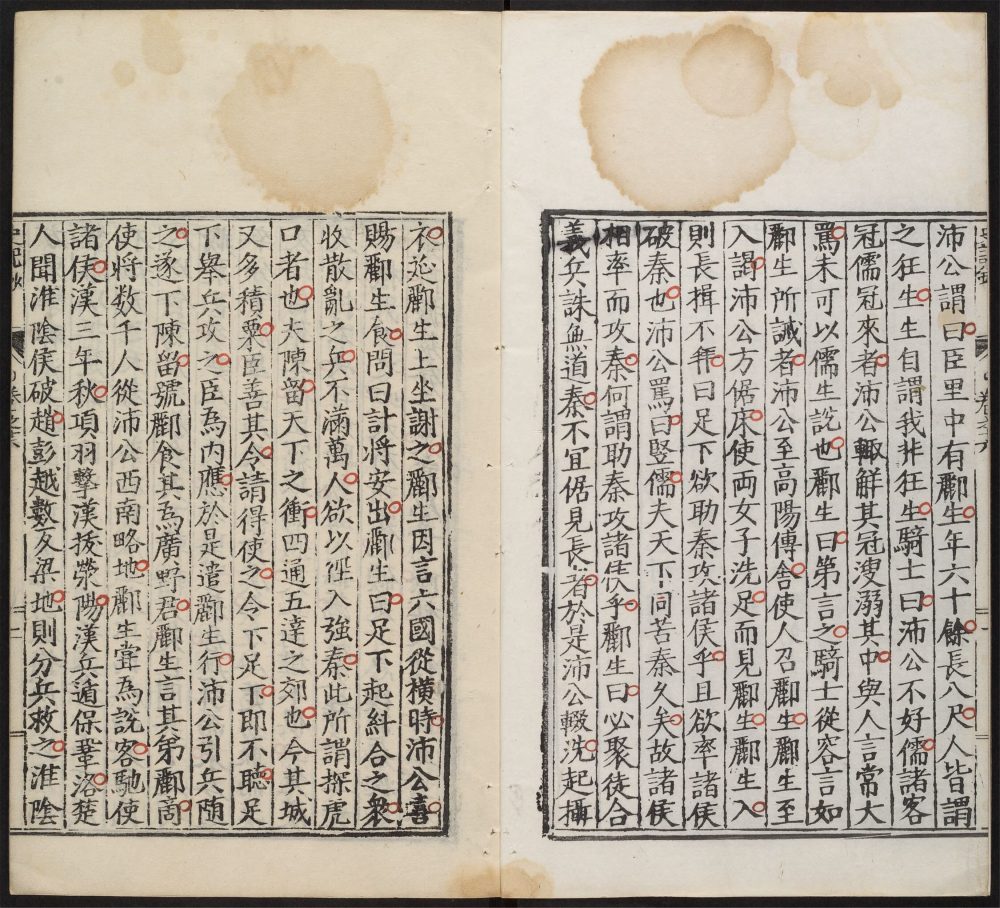 沛公謂曰臣里中有酈生年六十餘長八尺人皆謂
之狂生生自謂我非狂生騎士曰沛公不好儒諸客
冠儒冠來者沛公輙解其冠溲溺其中與人言常大
罵未可以儒生說也酈生曰第言之騎士從容言如
酈生所誡者沛公至高陽傳舍使人召酈生酈生至
入謁沛公方倨床使両女子洗足而見酈生酈生入
則長揖不拜曰足下欲助秦攻諸侯乎且欲率諸侯
破秦也沛公罵曰竪儒夫天下同苦秦久矣故諸侯
相率而攻秦何謂助秦攻諸侯乎酈生曰必聚徒合
義兵誅無道秦不宜倨見長者於是沛公輟洗起攝
衣延酈生上坐謝之酈生因言六國從横時沛公喜
賜酈生食問曰計將安出酈生曰足下起糾合之衆
收散亂之兵不滿萬人欲以徑入強秦此所謂探虎
口者也夫陳留天下之衝四通五達之郊也今其城
又多積粟臣善其令請得使之令下足下即不聽足
下舉兵攻之臣為内應於是遣酈生行沛公引兵随
之遂下陳留號酈食其為廣野君酈生言其弟酈商
使將数千人從沛公西南略地酈生常為說客馳使
諸侯漢三年秋項羽擊漢拔滎陽漢兵遁保鞏洛楚
人聞淮陰侯破趙彭越數反梁地則分兵救之淮陰